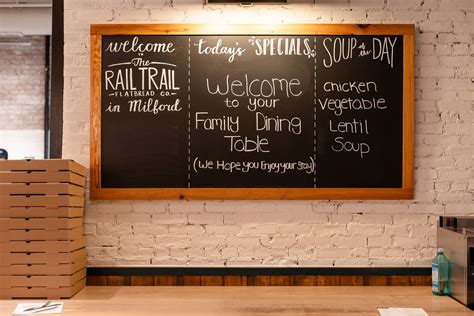 welcome
The
RAIL TRAIL
FLATBREAD CO.
in Milford
today's SPECIALS
Welcome
to your
Family Dining
Table
(We Hope you Enjoy your Stay)
SOUP of the DAY
chicken
Vegetable
Lentil
Soup